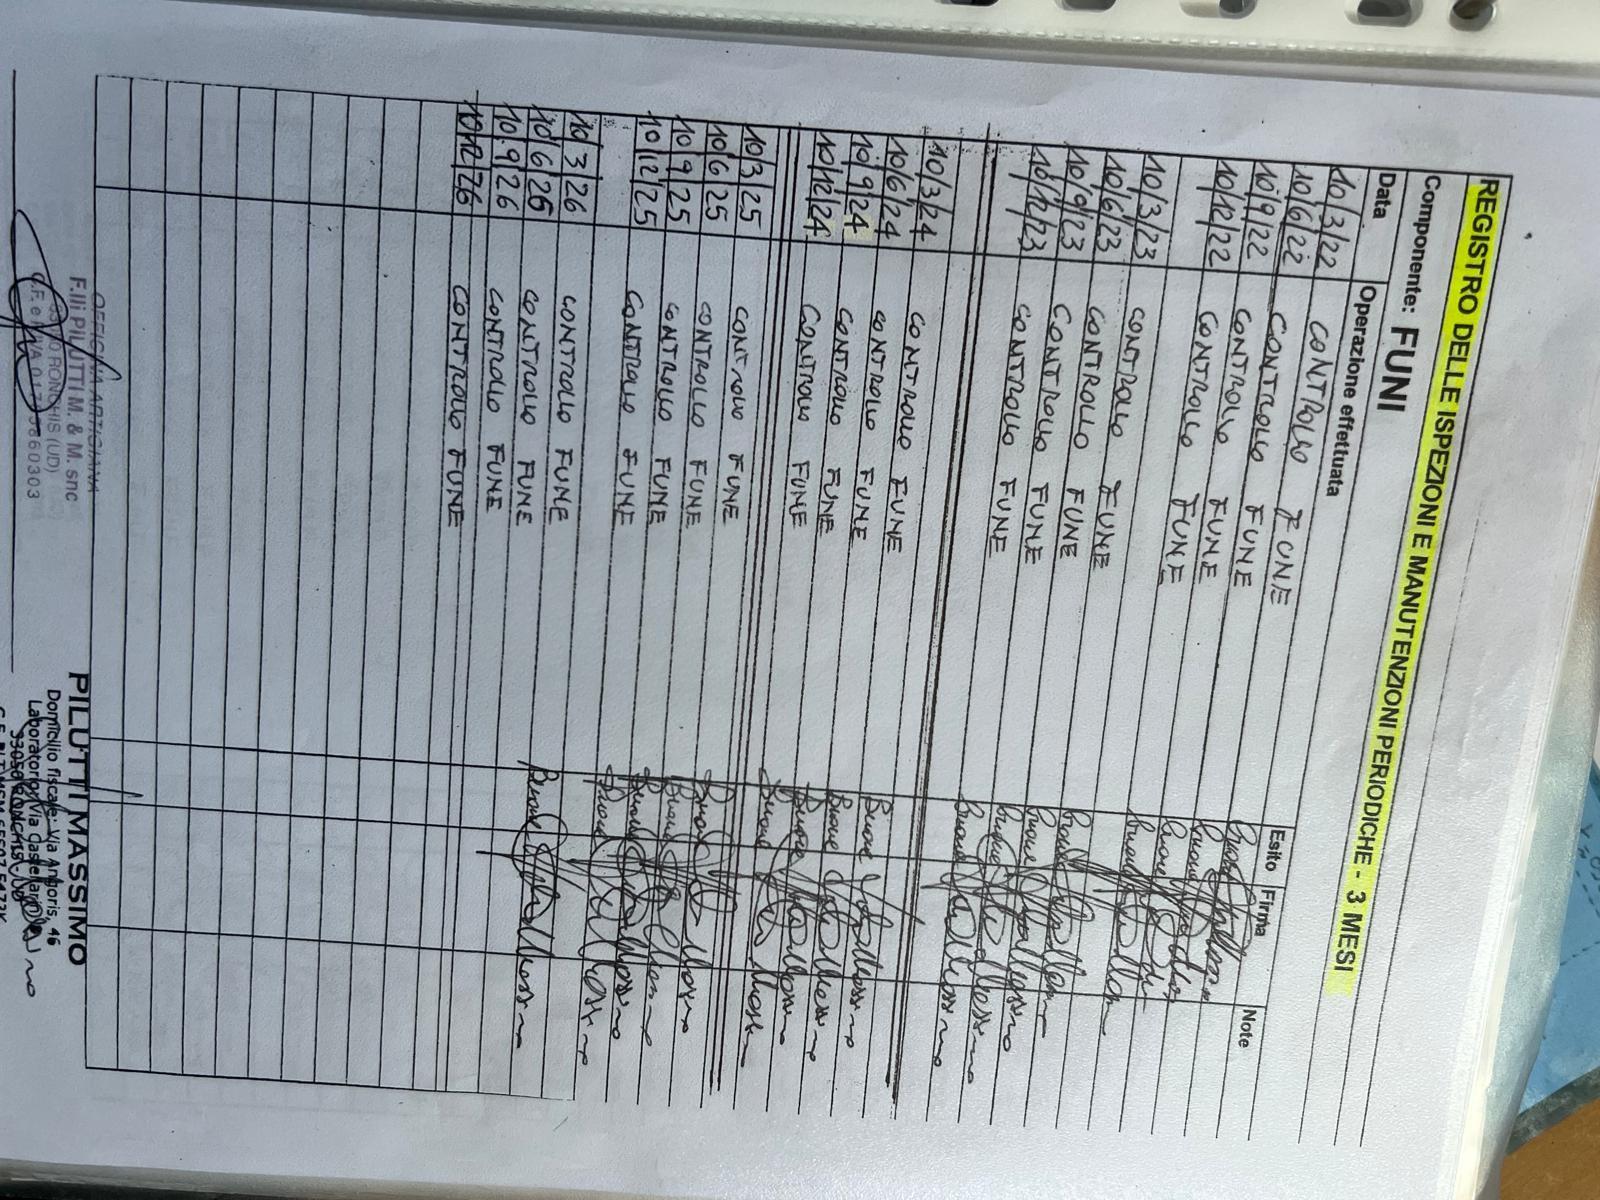 REGISTRO DELLE ISPEZIONI E MANUTENZIONI PERIODICHE - 3 MESI
Componente: FUNI
Data Operazione effettuata Esito Firma Note
10/3/22 CONTROLLO FUNE Buono
10/6/22 CONTROLLO FUNE Buono
10/9/22 CONTROLLO FUNE Buono
10/12/22 CONTROLLO FUNE Buono
10/3/23 CONTROLLO FUNE Buono
10/6/23 CONTROLLO FUNE Buono
10/9/23 CONTROLLO FUNE Buono
10/12/23 CONTROLLO FUNE Buono
10/3/24 CONTROLLO FUNE Buono
10/6/24 CONTROLLO FUNE Buono
10/9/24 CONTROLLO FUNE Buono
10/12/24 CONTROLLO FUNE Buono
10/3/25 CONTROLLO FUNE Buono
10/6/25 CONTROLLO FUNE Buono
10/9/25 CONTROLLO FUNE Buono
10/12/25 CONTROLLO FUNE Buono
10/3/26 CONTROLLO FUNE Buono
10/6/26 CONTROLLO FUNE
10/9/26 CONTROLLO FUNE
10/12/26 CONTROLLO FUNE
OFFICINA ARTIGIANA
F.lli PILUTTI M. & M. snc
RONCHIS (UD)
PILUTTI MASSIMO
Domicilio fiscale: Via Angoris, 46
Laboratorio: Via
33050 RONCHIS